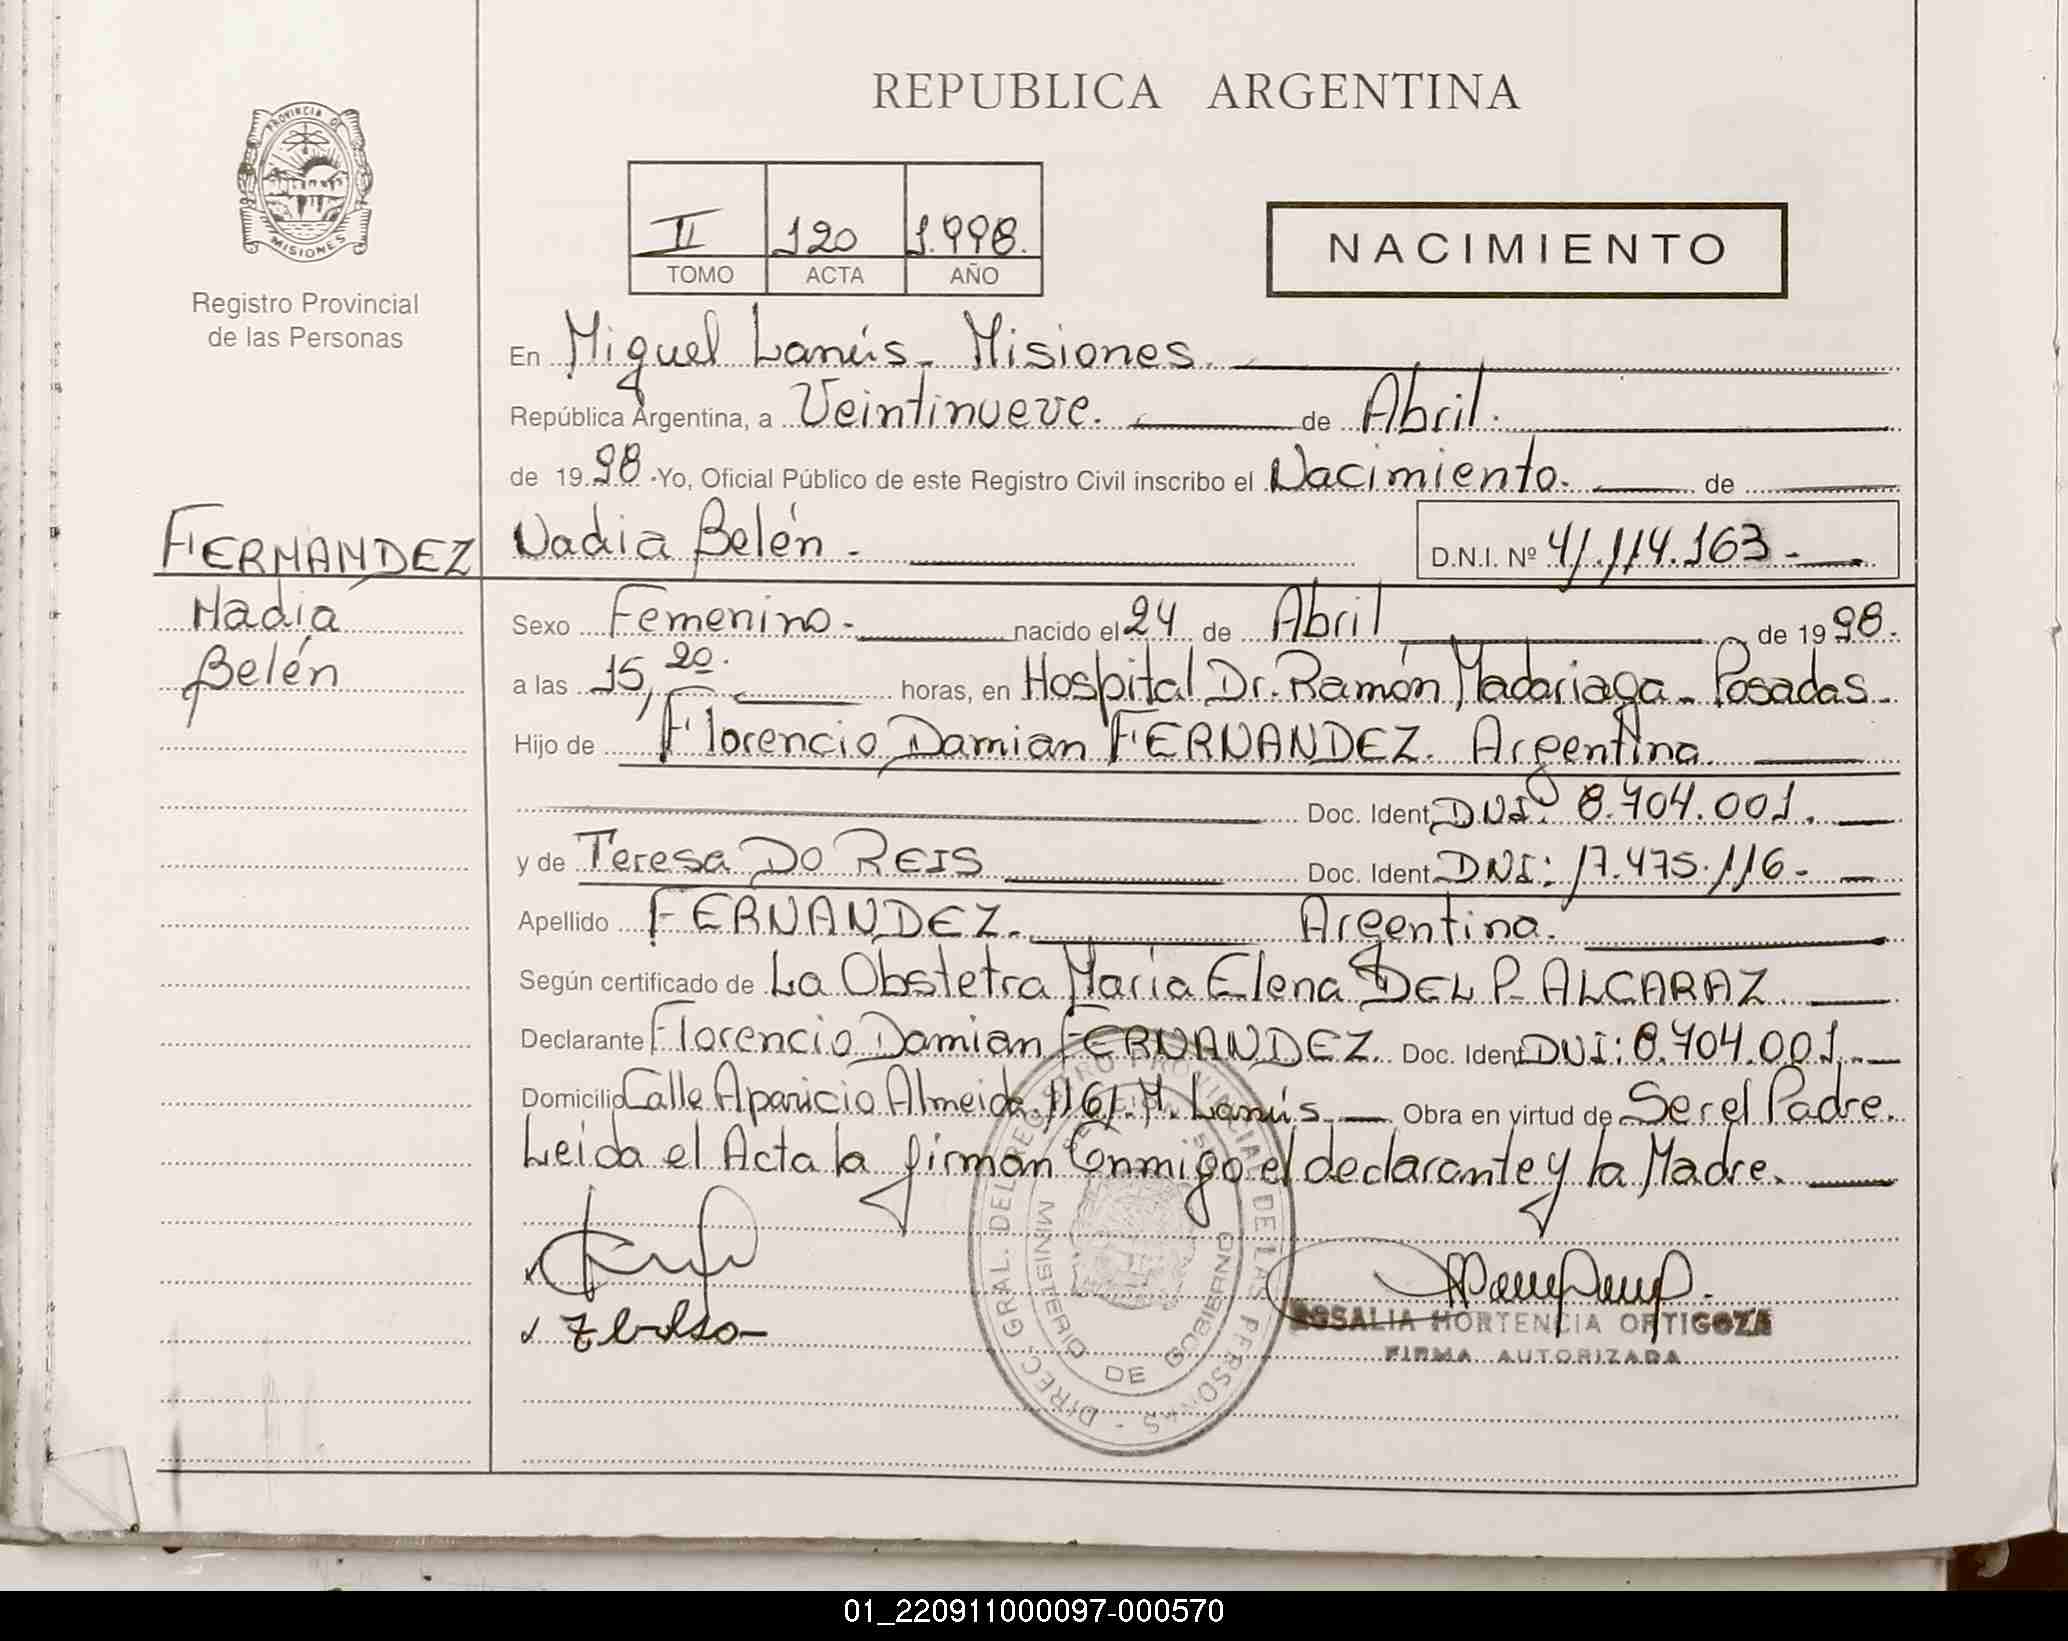 REPUBLICA ARGENTINA
PROVINCIA DE
MISIONES
Registro Provincial
de las Personas
II 120 1.998.
TOMO ACTA AÑO
NACIMIENTO
En Miguel Lanús - Misiones.
República Argentina, a Veintinueve. de Abril.
de 19 98 .Yo, Oficial Público de este Registro Civil inscribo el Nacimiento. de
FERNANDEZ Nadia Belén - D.N.I. Nº 41.114.163 -
Nadia Sexo Femenino - nacido el 24 de Abril de 19 98.
Belén a las 15,20. horas, en Hospital Dr. Ramón Madariaga - Posadas -
Hijo de Florencio Damian FERNANDEZ. Argentina
Doc. Ident DNI: 8.704.001.
y de Teresa DO REIS Doc. Ident DNI: 17.475.116 -
Apellido FERNANDEZ. Argentina.
Según certificado de La Obstetra Maria Elena DEL P. ALCARAZ
Declarante Florencio Damian FERNANDEZ. Doc. Ident DNI: 8.704.001.
Domicilio Calle Aparicio Almeida 1161. M. Lanús Obra en virtud de Ser el Padre.
Leida el Acta la firman Conmigo el declarante y la Madre.
DIREC. GRAL. DEL REGISTRO PROVINCIAL DE LAS PERSONAS -
MINISTERIO DE GOBIERNO
ROSALIA HORTENCIA ORTIGOZA
FIRMA AUTORIZADA
01_220911000097-000570